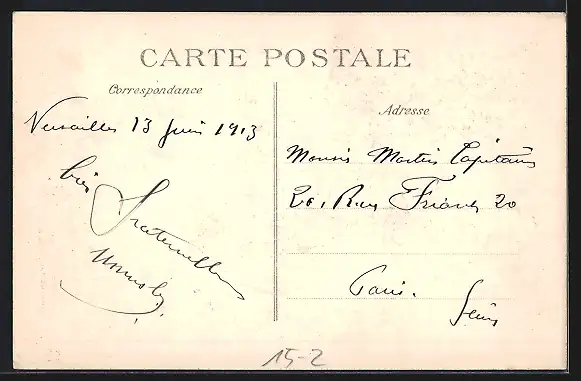 CARTE POSTALE
Correspondance
Versailles 13 Juin 1913
bien
Fraternelle
Adresse
Martin Capitaine
20, Rue 20
Paris.
Seine
15-2